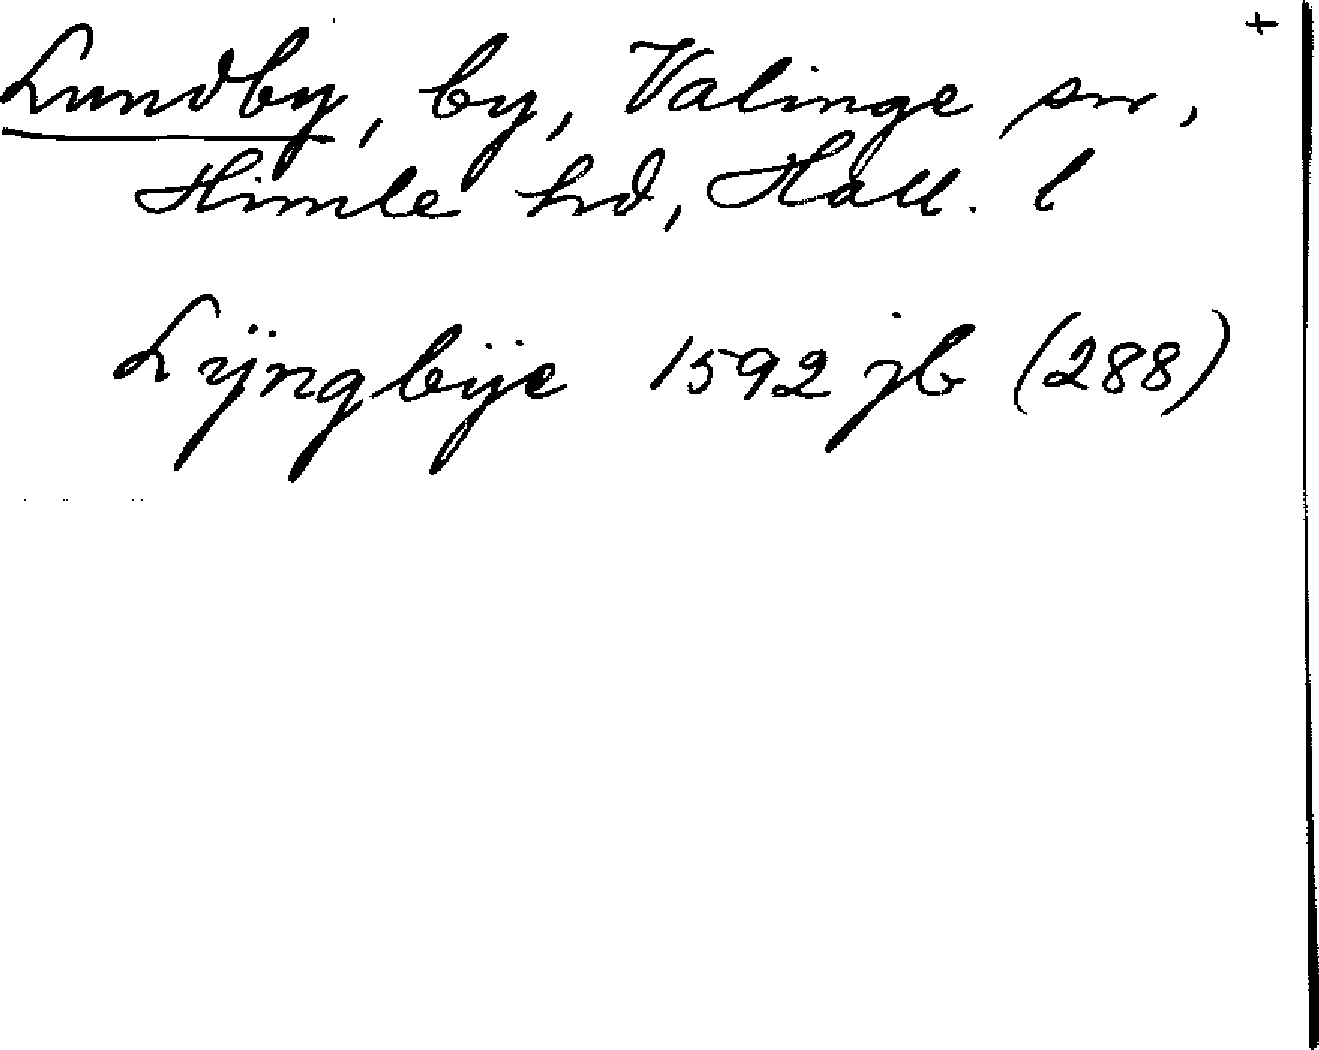 +
Lundby, by, Valinge sn,
Himle hd, Hall. l
Lÿngbÿe 1592 jb (288)